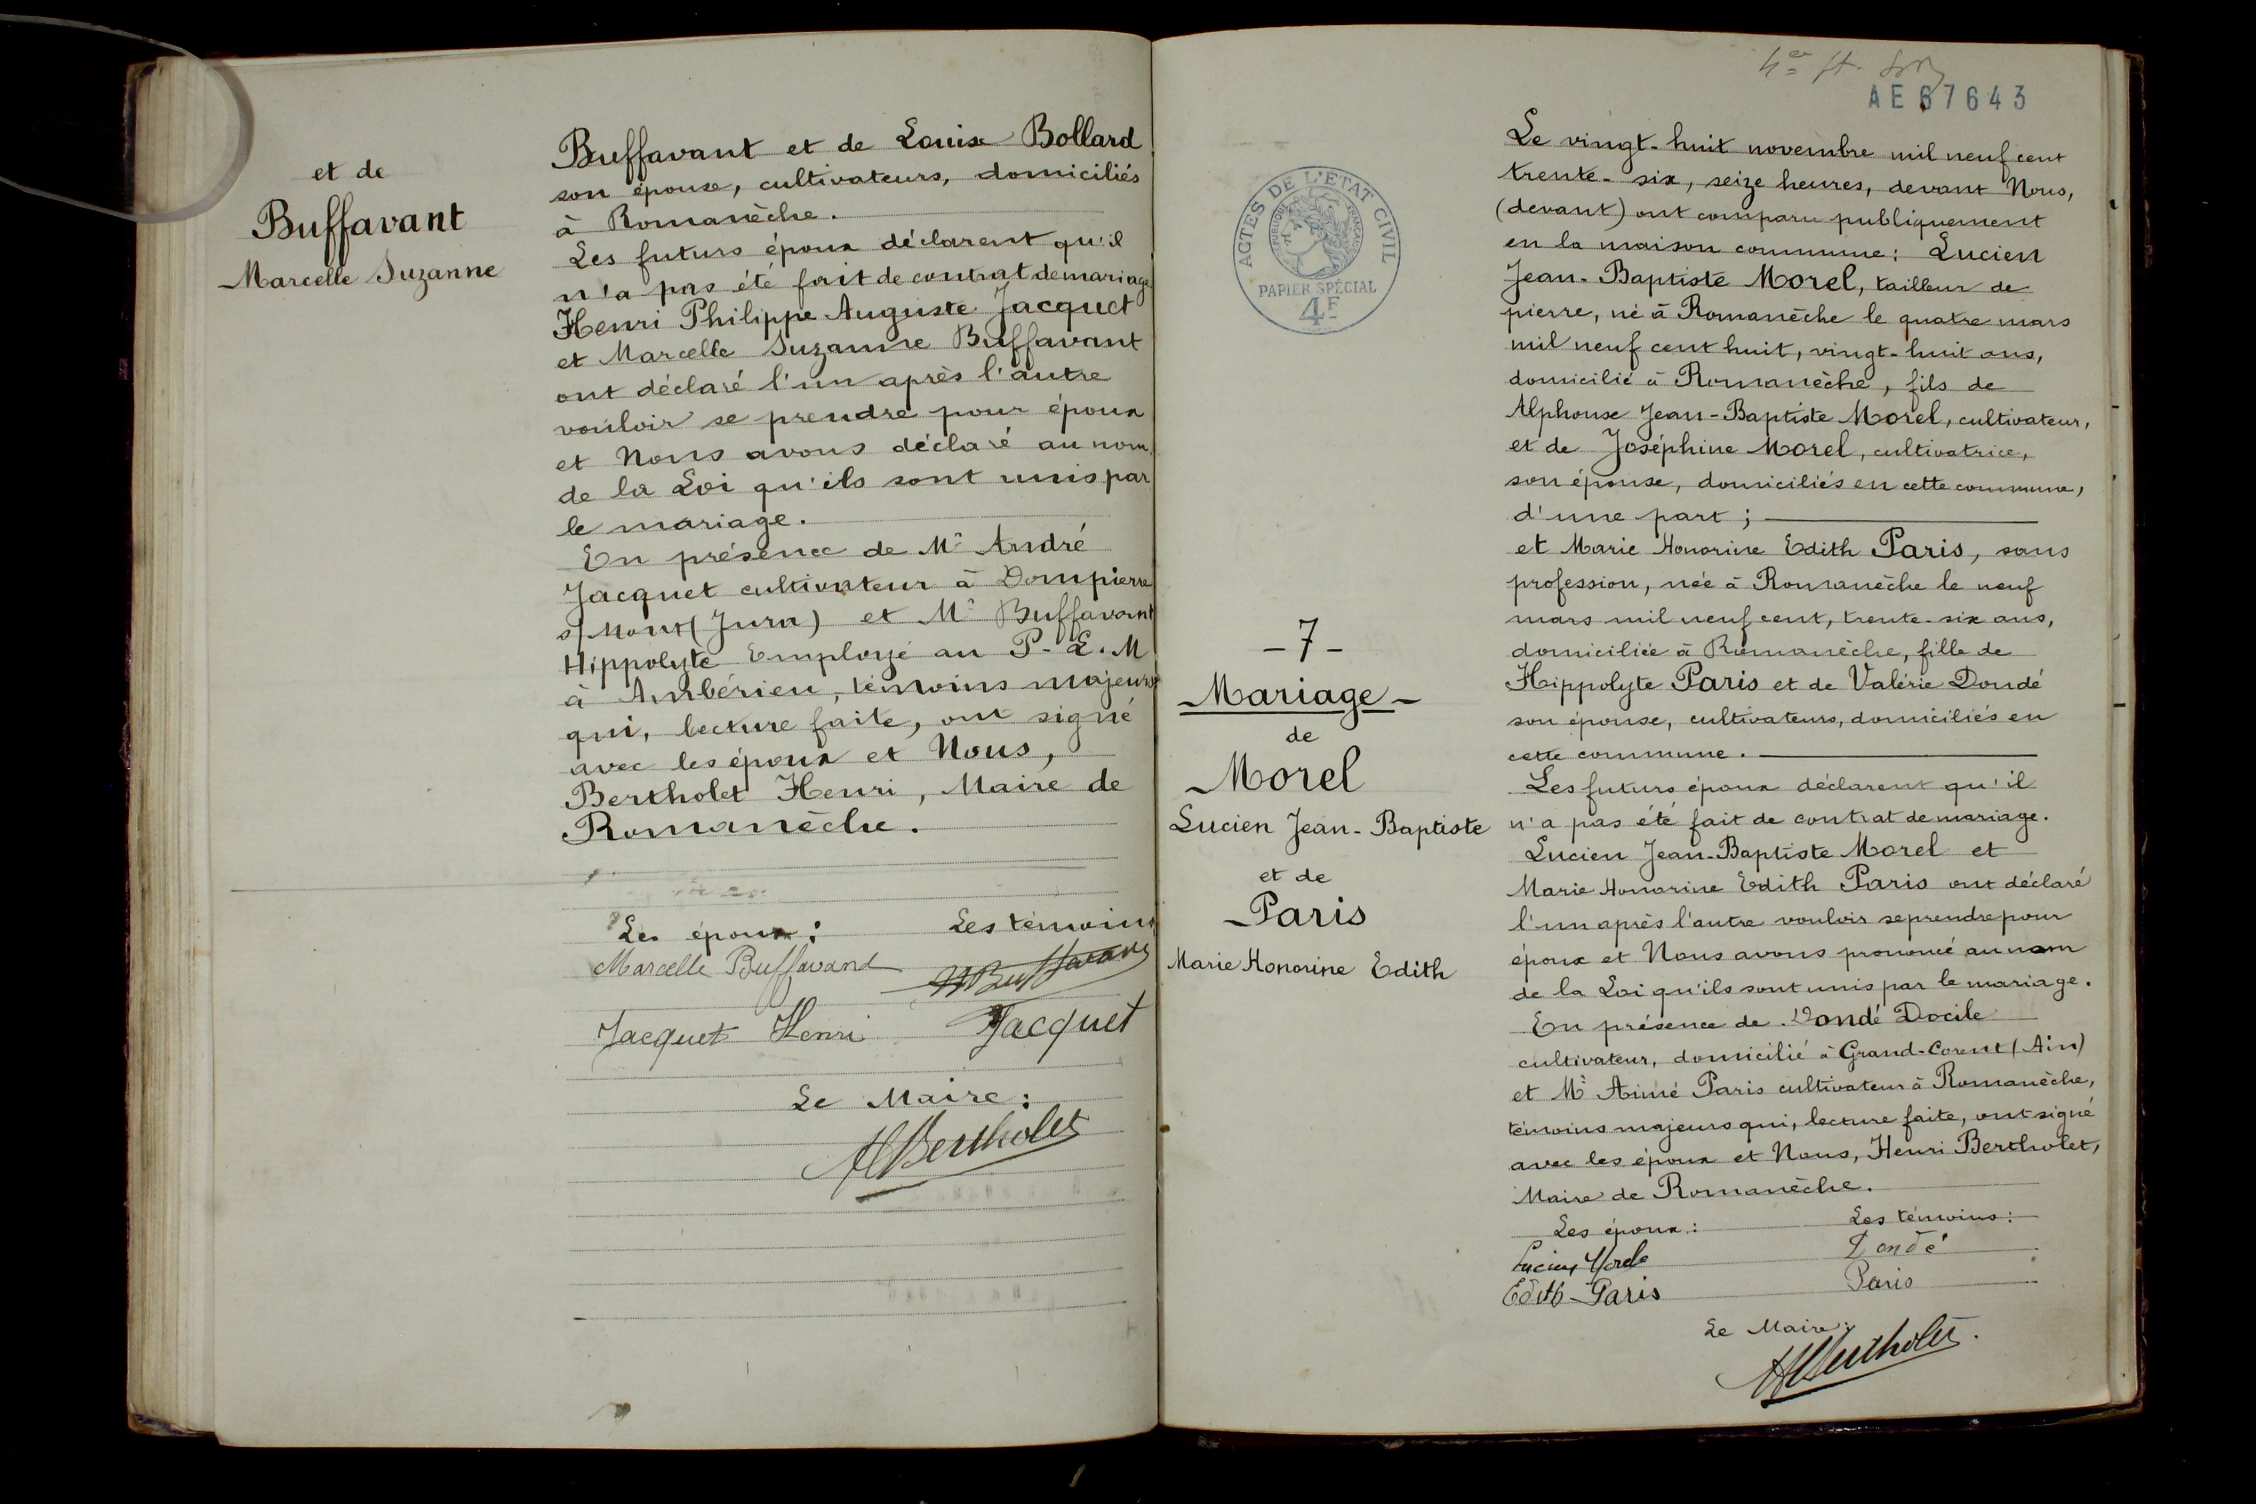 et de
Buffavant
Marcelle Suzanne
Buffavant et de Louise Bollard
son épouse, cultivateurs, domiciliés
à Romanèche.
Les futurs époux déclarent qu'il
n'a pas été fait de contrat de mariage
Henri Philippe Auguste Jacquet
et Marcelle Suzanne Buffavant
ont déclaré l'un après l'autre
vouloir se prendre pour époux
et Nous avons déclaré au nom
de la Loi qu'ils sont unis par
le mariage.
En présence de Mr André
Jacquet cultivateur à Dompierre
s/Mont (Jura) et Mr Buffavant
Hippolyte Employé au P. L. M
à Ambérieu, témoins majeurs
qui, lecture faite, ont signé
avec les époux et Nous,
Bertholet Henri, Maire de
Romanèche.
Les époux: Les témoins
Marcelle Buffavand HBuffavant
Jacquet Henri Jacquet
Le Maire:
HBertholet
AE67643
ACTES DE L'ETAT CIVIL
REPUBLIQUE FRANÇAISE
PAPIER SPÉCIAL
4F
- 7 -
Mariage
de
Morel
Lucien Jean-Baptiste
et de
Paris
Marie Honorine Edith
Le vingt-huit novembre mil neuf cent
trente-six, seize heures, devant Nous,
(devant) ont comparu publiquement
en la maison commune: Lucien
Jean-Baptiste Morel, tailleur de
pierre, né à Romanèche le quatre mars
mil neuf cent huit, vingt-huit ans,
domicilié à Romanèche, fils de
Alphonse Jean-Baptiste Morel, cultivateur,
et de Joséphine Morel, cultivatrice,
son épouse, domiciliés en cette commune,
d'une part;
et Marie Honorine Edith Paris, sans
profession, née à Romanèche le neuf
mars mil neuf cent, trente-six ans,
domiciliée à Romanèche, fille de
Hippolyte Paris et de Valérie Dondé
son épouse, cultivateurs, domiciliés en
cette commune.
Les futurs époux déclarent qu'il
n'a pas été fait de contrat de mariage.
Lucien Jean-Baptiste Morel et
Marie Honorine Edith Paris ont déclaré
l'un après l'autre vouloir se prendre pour
époux et Nous avons prononcé au nom
de la Loi qu'ils sont unis par le mariage.
En présence de Dondé Docile
cultivateur, domicilié à Grand-Corent (Ain)
et Mr Aimé Paris cultivateur à Romanèche,
témoins majeurs qui, lecture faite, ont signé
avec les époux et Nous, Henri Bertholet,
Maire de Romanèche.
Les époux: Les témoins:
Lucien Morel Dondé
Edith Paris Paris
Le Maire:
HBertholet.